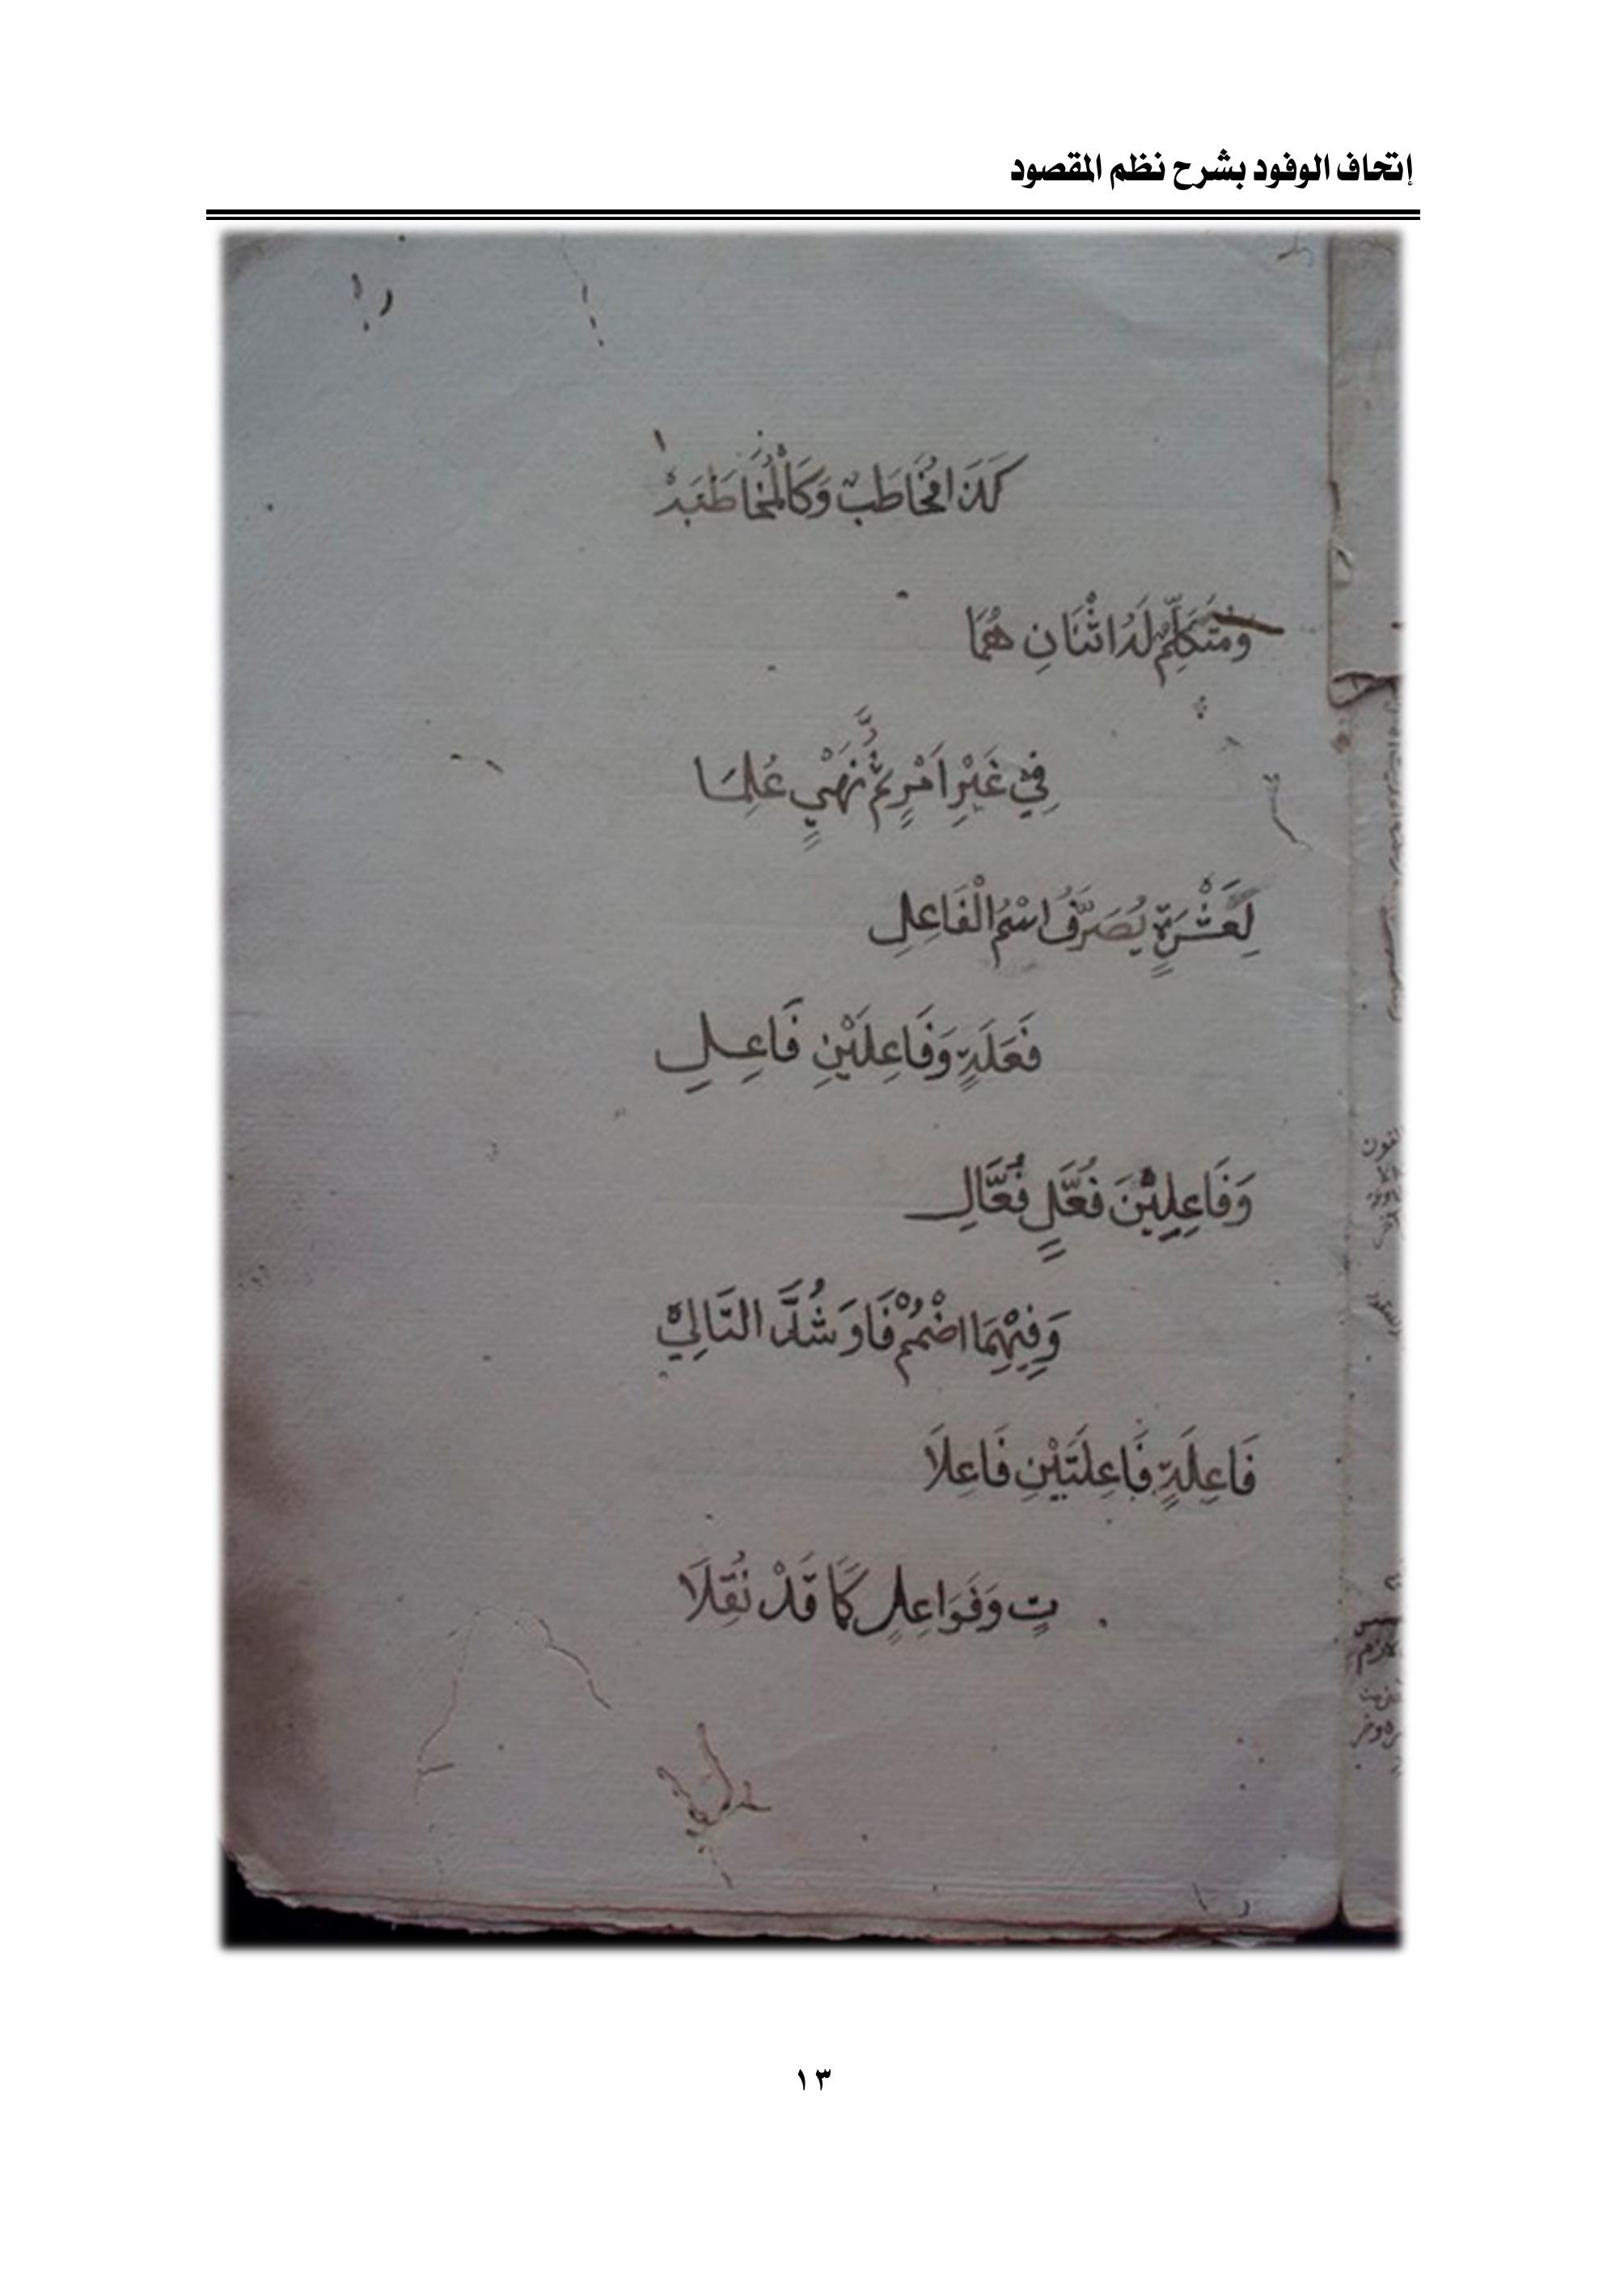 إتحاف الوفود بشرح نظم المقصود
كَذَا مُخَاطَبٌ وَكَالْمُخَاطَبَهْ
وَمُتَكَلِّمٌ لَهُ اثْنَانِ هُمَا
فِيْ غَيْرِ اَمْرٍ ثُمَّ نَهْيٍ عُلِمَا
لِعَشْرَةٍ يُصَرَّفُ اسْمُ الْفَاعِلِ
فَعَلَةٍ وَفَاعِلَيْنِ فَاعِلِ
وَفَاعِلِيْنَ فُعَّلٍ فُعَّالِ
وَفِيْهِمَا اضْمُمْ فَا وَشُدَّ التَّالِيْ
فَاعِلَةٍ فَاعِلَتَيْنِ فَاعِلَا
تٍ وَفَوَاعِلٍ كَمَا قَدْ نُقِلَا
١٣